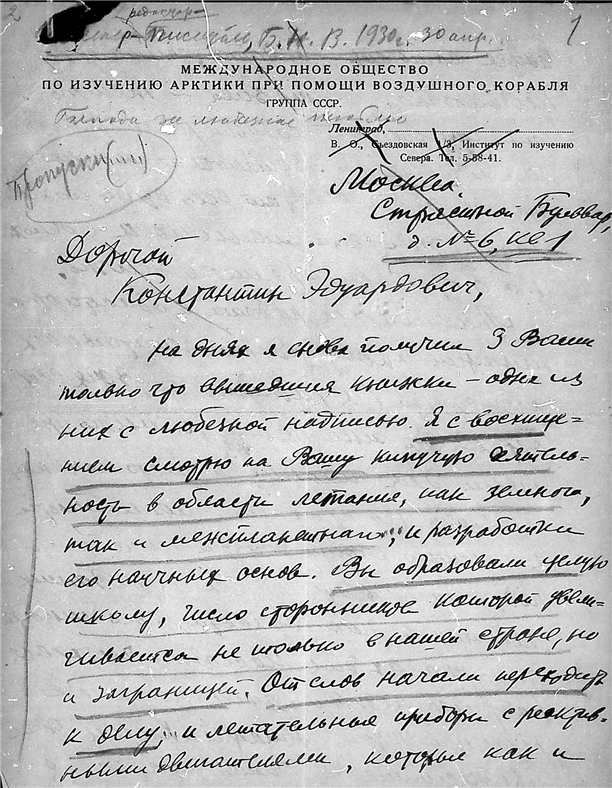 2
1
редактора
писателю, Б. Н. В. 1930г. 30 апр.
МЕЖДУНАРОДНОЕ ОБЩЕСТВО
ПО ИЗУЧЕНИЮ АРКТИКИ ПРИ ПОМОЩИ ВОЗДУШНОГО КОРАБЛЯ
ГРУППА СССР.
за любезное
Ленинград,
В. О., Съездовская 1/3, Институт по изучению
Севера. Тел. 5-58-41.
Пропуски(...)
Москва.
Страстной Бульвар,
д. №6, кв 1
Дорогой
Константин Эдуардович,
на днях я снова получил 3 Ваши
только что вышедшия книжки – одна из
них с любезной надписью. Я с восхище=
нием смотрю на Вашу кипучую деятель=
ность в области летания, как земного,
так и межпланетнаго, и разработки
его научных основ. Вы образовали целую
школу, число сторонников которой увели=
чивается не только в нашей стране, но
и заграницей. От слов начали переходить
к делу, и летательные приборы с реактив=
ными двигателями, которые как и